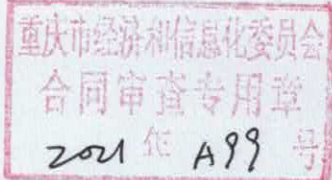 重庆市经济和信息化委员会
合同审查专用章
2021 年 A99 号